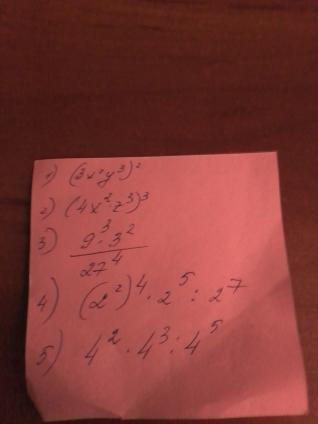 1) (3x⁴y³)²
2) (4x²·z³)³
3) 9³·3² / 27⁴
4) (2²)⁴·2⁵:2⁷
5) 4²·4³:4⁵